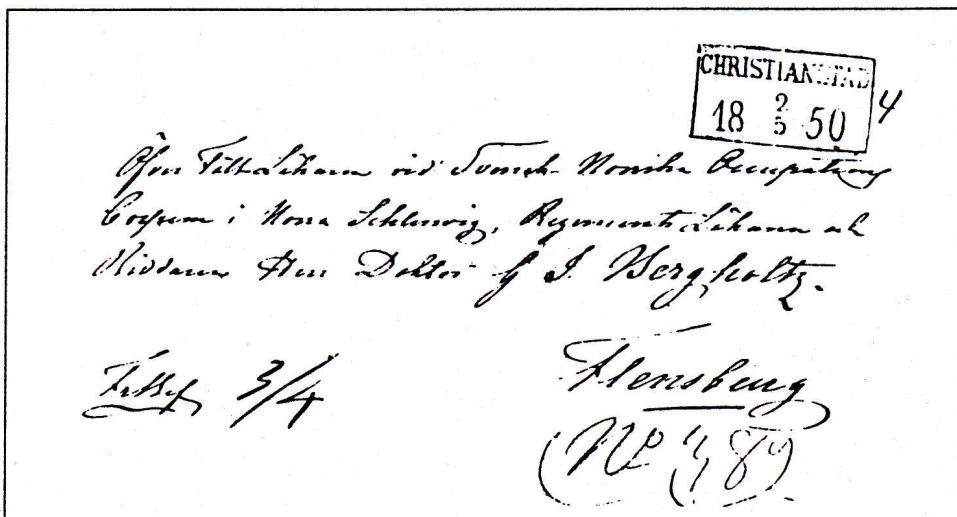 CHRISTIANSTAD
18 2/5 50
4
Öfver FältLäkaren vid Svensk-Norska Occupations
Corpsen i Norra Schleswig, RegementsLäkaren och
Riddaren Herr Doktor G J Bergholtz.
Flensburg
3/4